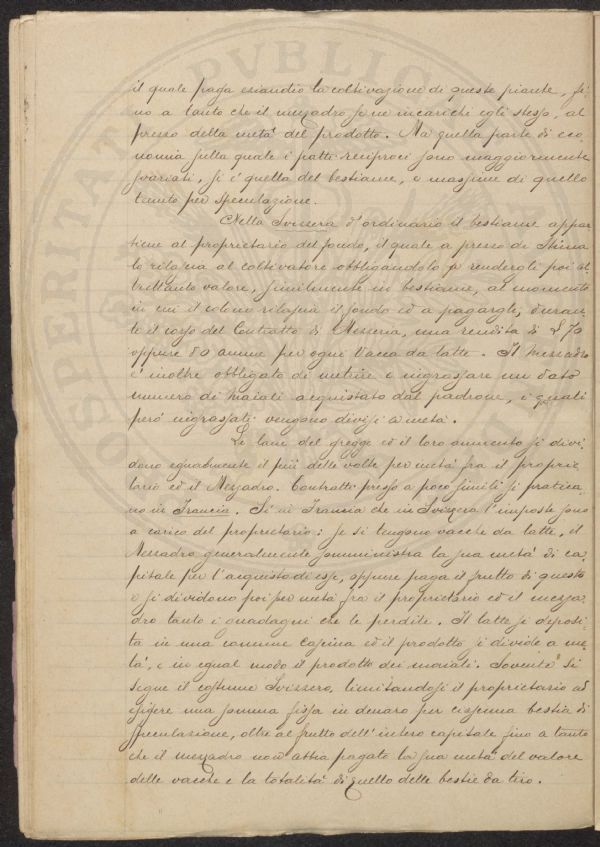 il quale paga eziandio la coltivazione di queste piante, fi-
no a tanto che il mezzadro se ne incarichi egli stesso, al
prezzo della metà del prodotto. Ma quella parte di eco
nomia sulla quale i patti reciproci sono maggiormente
svariati, si è quella del bestiame, e massime di quello
tenuto per speculazione.
Nella Svizzera d'ordinario il bestiame appar
tiene al proprietario del fondo, il quale a prezzo di Stima
lo rilascia al coltivatore obbligandolo a rendergli poi al
trettanto valore, similmente in bestiame, al momento
in cui il colono rilascia il fondo ed a pagargli, duran-
te il corso del Contratto di Mezzeria, una rendita di £ 70
oppure 80 annue per ogni Vacca da latte. Il Mezzadro
è inoltre obbligato di nutrire e ingrassare un dato
numero di maiali acquistato dal padrone, i quali
però ingrassati vengono divisi a metà.
Le lane del gregge ed il loro aumento si divi
dono egualmente il più delle volte per metà fra il proprie
tario ed il Mezzadro. Contratti presso a poco simili si pratica
no in Francia. Sì in Francia che in Svizzera l'imposte sono
a carico del proprietario: se si tengono vacche da latte, il
Mezzadro generalmente somministra la sua metà di ca-
pitale per l'acquisto di esse, oppure paga il frutto di questo
e si dividono poi per metà fra il proprietario ed il mezza-
dro tanto i guadagni che le perdite. Il latte si deposi-
ta in una comune Cascina ed il prodotto si divide a me
tà, e in egual modo il prodotto dei maiali. Sovente si
segue il costume Svizzero, limitandosi il proprietario ad
esigere una somma fissa in denaro per ciascuna bestia di
speculazione, oltre al frutto dell'intero capitale fino a tanto
che il mezzadro non abbia pagato la sua metà del valore
delle vacche e la totalità di quello delle bestie da tiro.